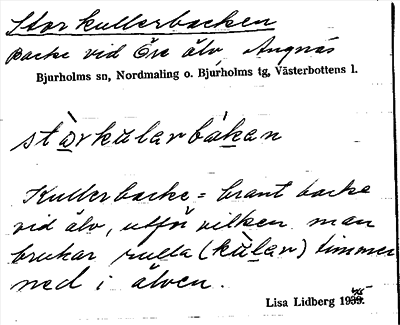 Storkullerbacken
Backe vid Öre älv Angnäs
Bjurholms sn, Nordmaling o. Bjurholms tg, Västerbottens l.
stòrkùlarbákan
Kullerbacke = brant backe
vid älv, utför vilken man
brukar rulla (kùlan) timmer
ned i älven.
Lisa Lidberg 1945.